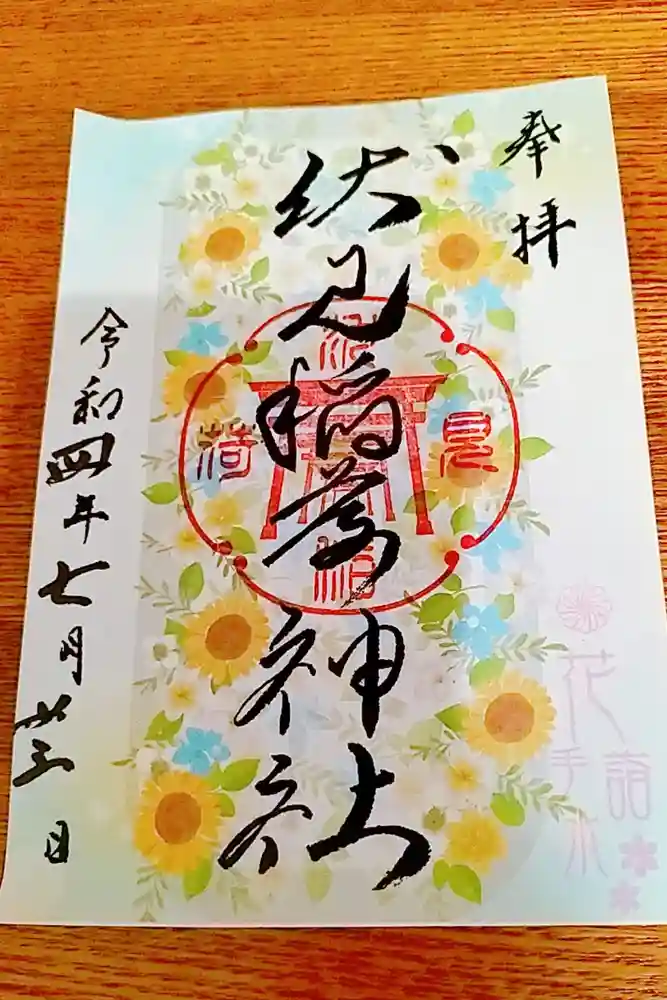 奉拝
伏見稲荷神社
令和四年七月廿三日
伏見稲荷
花手水詣